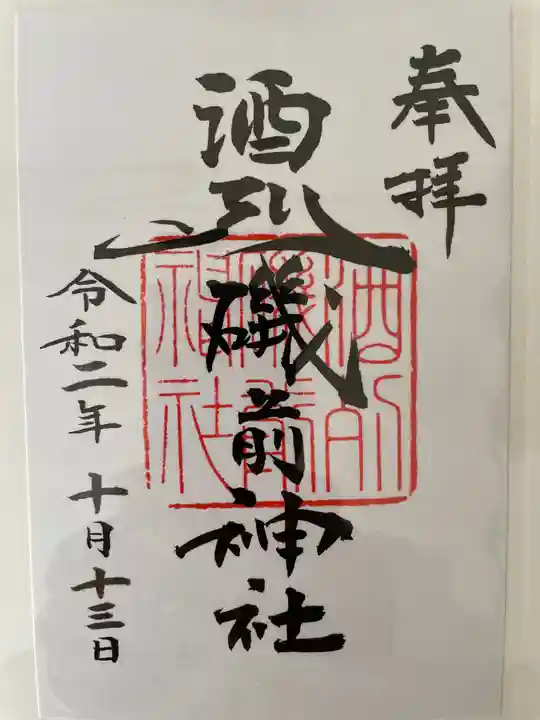 奉拝
酒列磯前神社
令和二年 十月十三日
酒列
磯前
神社